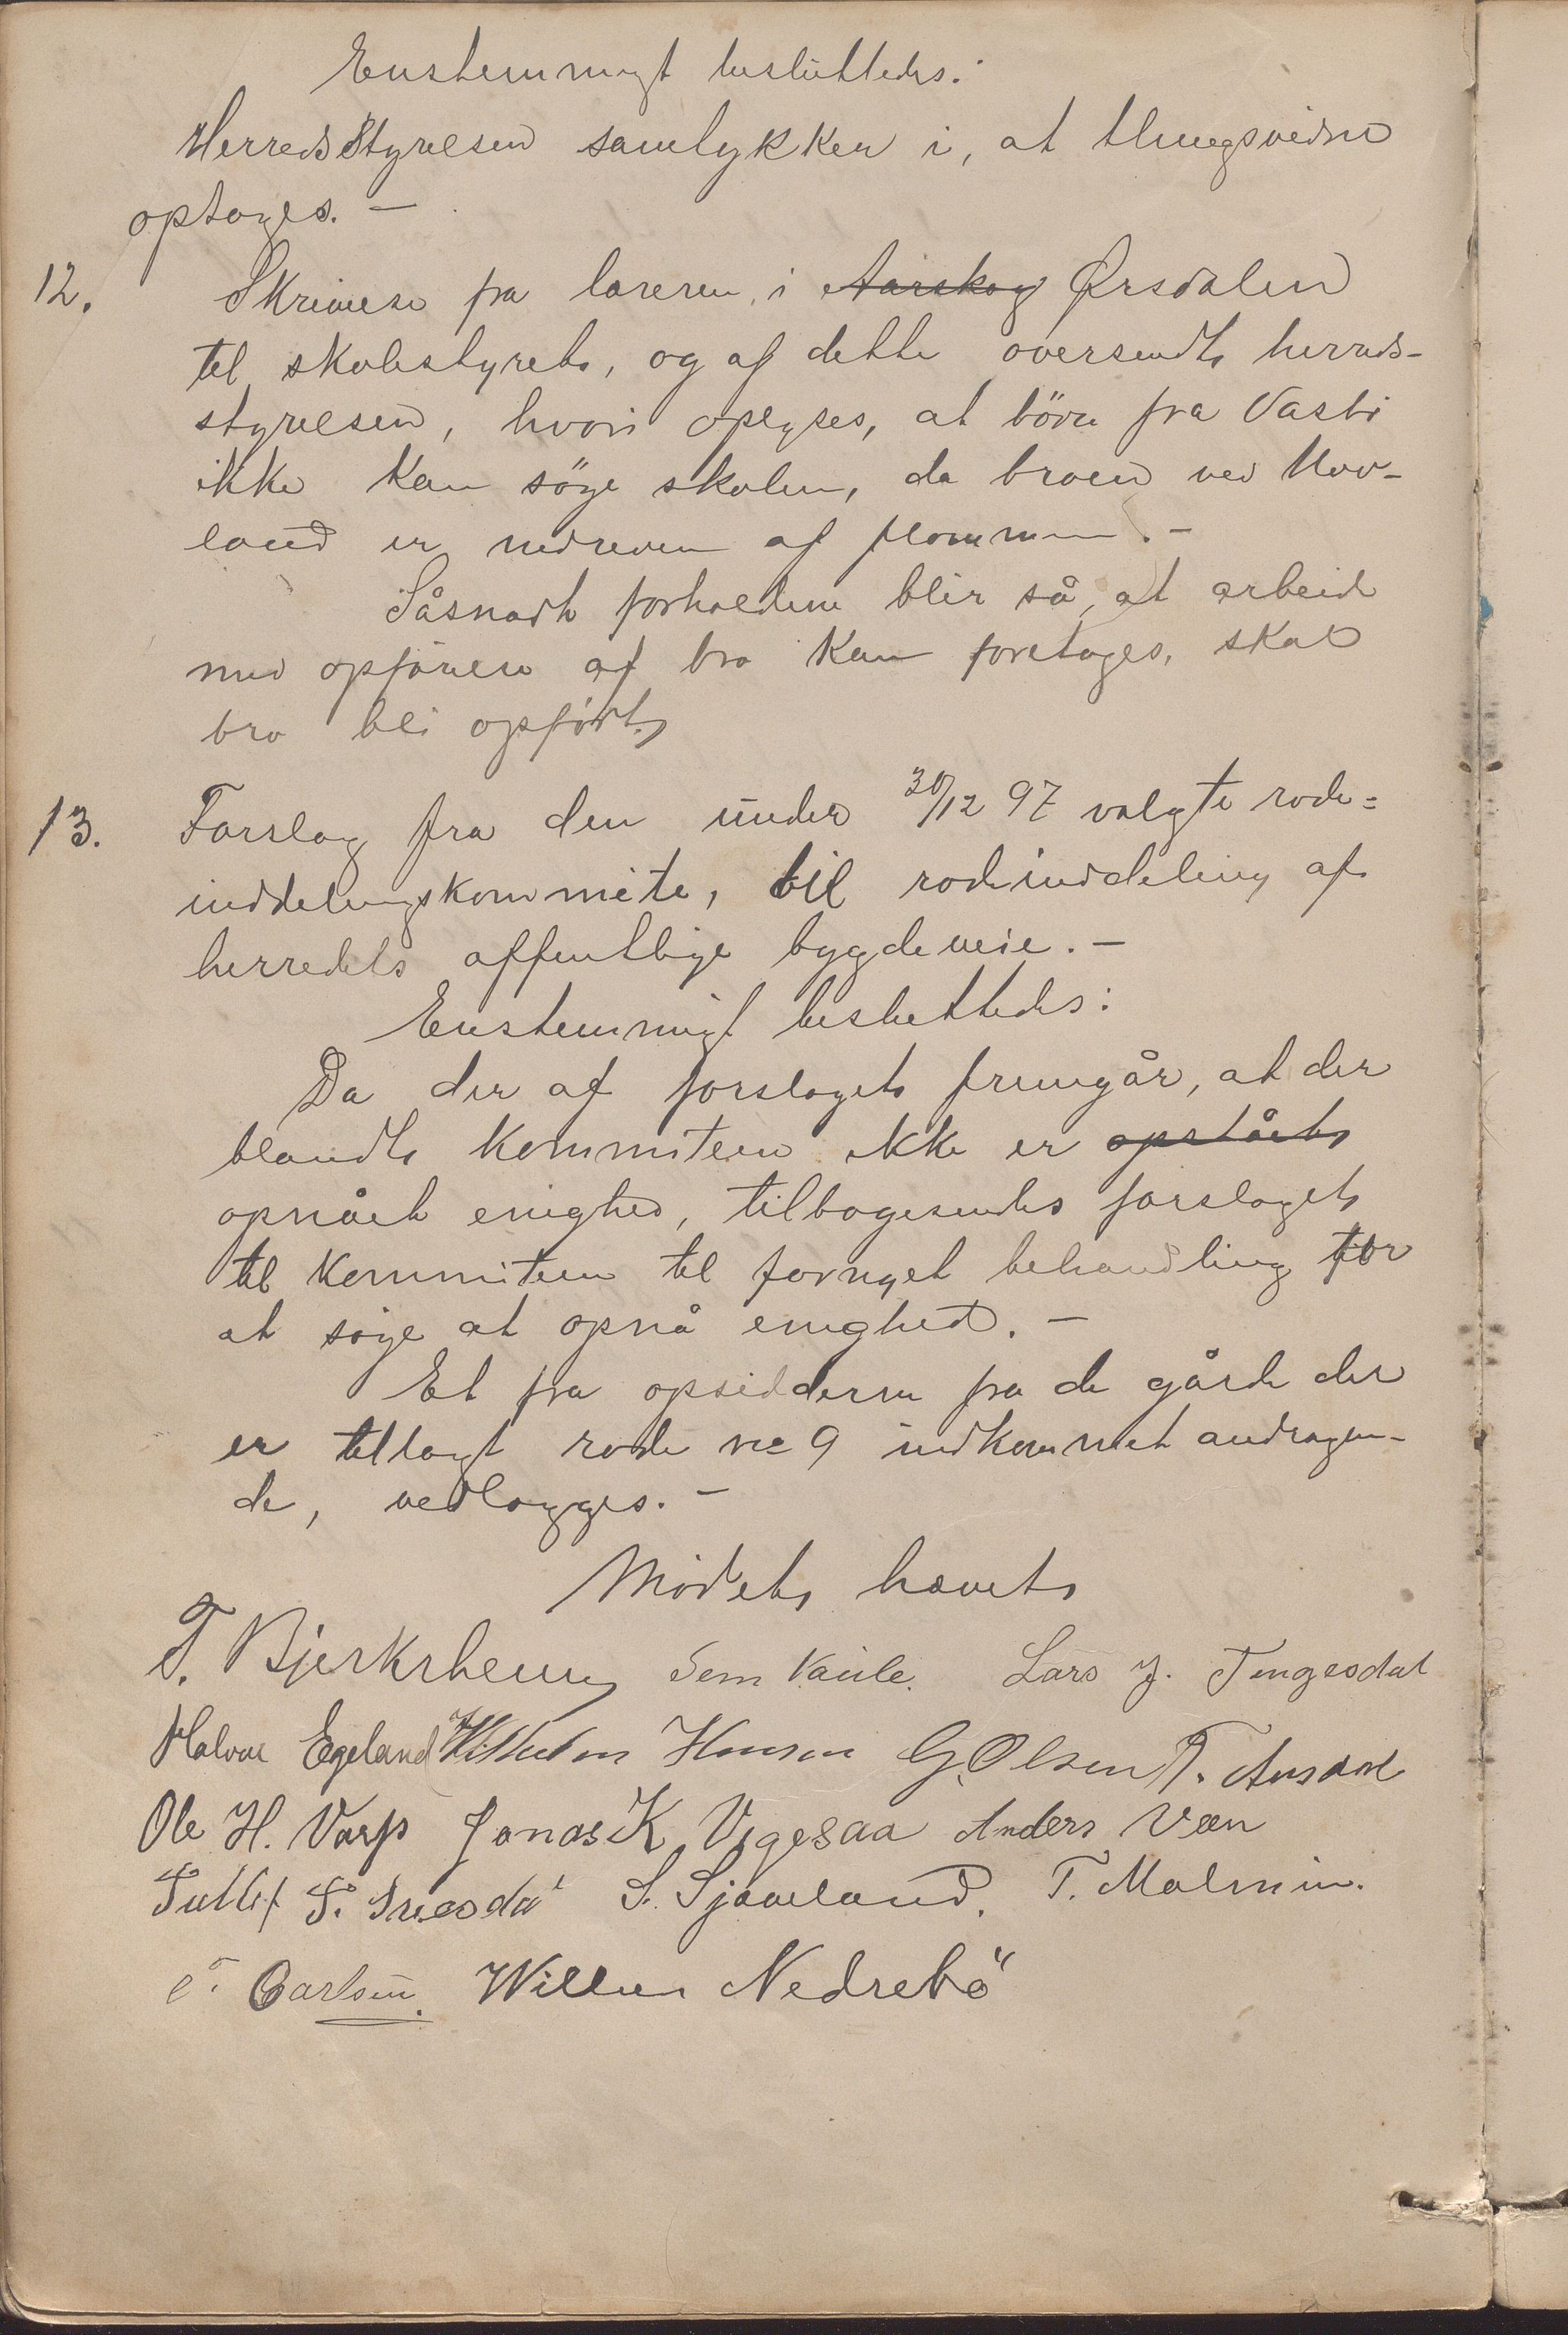 Enstemmigt besluttedes:
Herredsstyrelsen samtykker i, at thingsvidne
optages. —
12. Skrivelse fra læreren i Aarskog Ørsdalen
til skolestyret, og af dette oversendt herreds-
styrelsen, hvori oplyses, at börn fra Vasbö
ikke kan söge skolen, da broen ved Hov-
land er nedreven af flommen. —
Såsnart forholdene blir så, at arbeide
med opförelse af bro kan foretages, skal
bro bli opfört.
13. Forslag fra den under 30/12 97 valgte rode=
inddelingskommite, til rodeinddeling af
herredets offentlige bygdeveie. —
Enstemmigt besluttedes:
Da der af forslaget fremgår, at der
blandt kommiteen ikke er opstået
opnået enighed, tilbagesendes forslaget
til kommiteen til fornyet behandling for
at söge at opnå enighed. —
Et fra opsidderne fra de gårde der
er tillagt rode no 9 indkommet andragen-
de, vedlægges. —
Mödet hævet
T. Bjerkrheim Sem Vaule. Lars J. Tengesdal
Halvor Egeland Vilhelm Hansen G. Olsen T. Austdal
Ole H. Varp Jonas K Vigesaa Anders Veen
Tollef T. S. Sjöveland. T. Malmin.
Carlsen. Willum Nedrebö